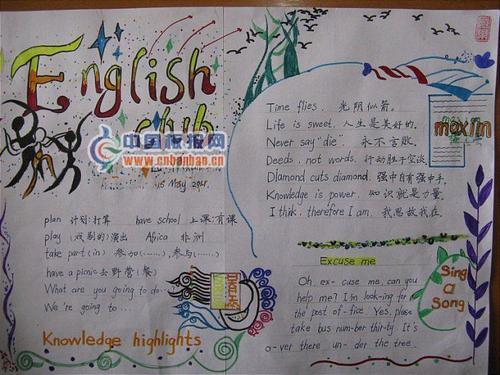 English
club
中国板报网
www.cnbanbao.cn
15 May
plan 计划;打算 have school 上课;有课
play (戏剧的)演出 Africa 非洲
take part (in) 参加(......), 参与(......)
have a picnic 去野营(餐)
What are you going to do...
We're going to...
Knowledge highlights
Time flies. 光阴似箭。
Life is sweet. 人生是美好的。
Never say "die". 永不言败。
Deeds, not words. 行动胜于空谈。
Diamond cuts diamond. 强中自有强中手。
Knowledge is power. 知识就是力量。
I think, therefore I am. 我思故我在。
maxim
Excuse me
Oh, ex-cuse me, can you
help me? I'm look-ing for
the post of-fice. Yes, please
take bus num-ber thir-ty. It's
o-ver there un-der the tree.
Sing
a
Song